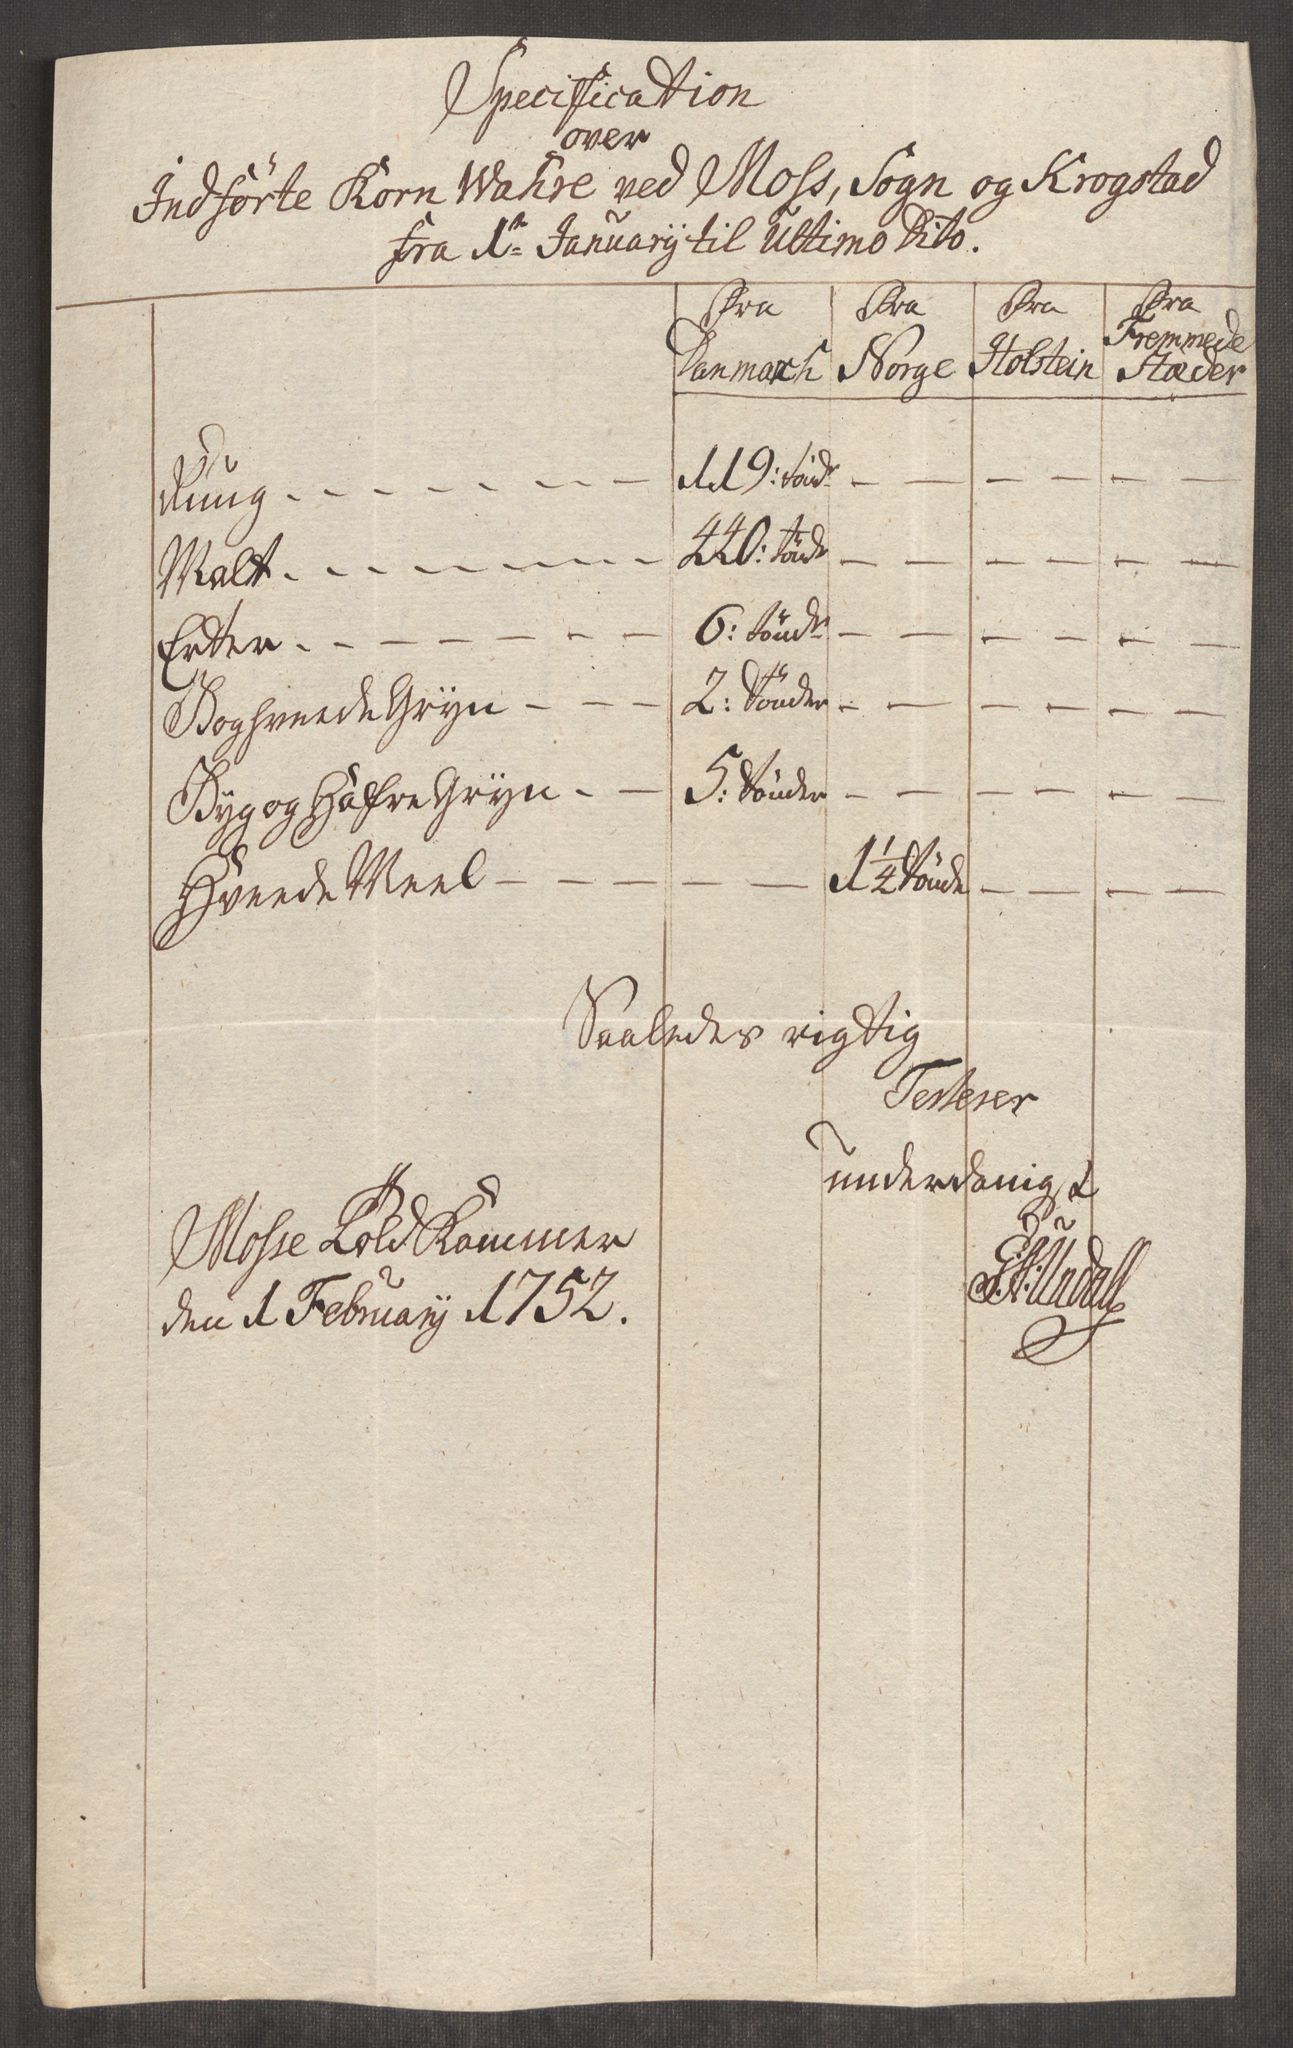 Specification
over
Indförte Korn Wahre ved Moss, Sogn og Krogstad
fra 1ⁿ Januarÿ til Ultimo Dito.
Fra Fra Fra Fra
Danmarch Norge Holstein Fremmede Stæder
Rüug . - - - - - - - 119: töndr - - - - - -
Malt . - - - - - - - 440: tönder - - - - - -
Erter . - - - - - - 6: töndr - - - - - -
Boghveede Grÿn - - - 2: Tönder - - - - - -
Bÿg og Hafre Grÿn . - 5: Tönder - - - - - -
Hveede Meel - - - - - - 1 1/4 Tönde - - - -
Saaledes rigtig
Testerer
underdanigst
Mosse Told Kammer
den 1 Februarÿ 1752.